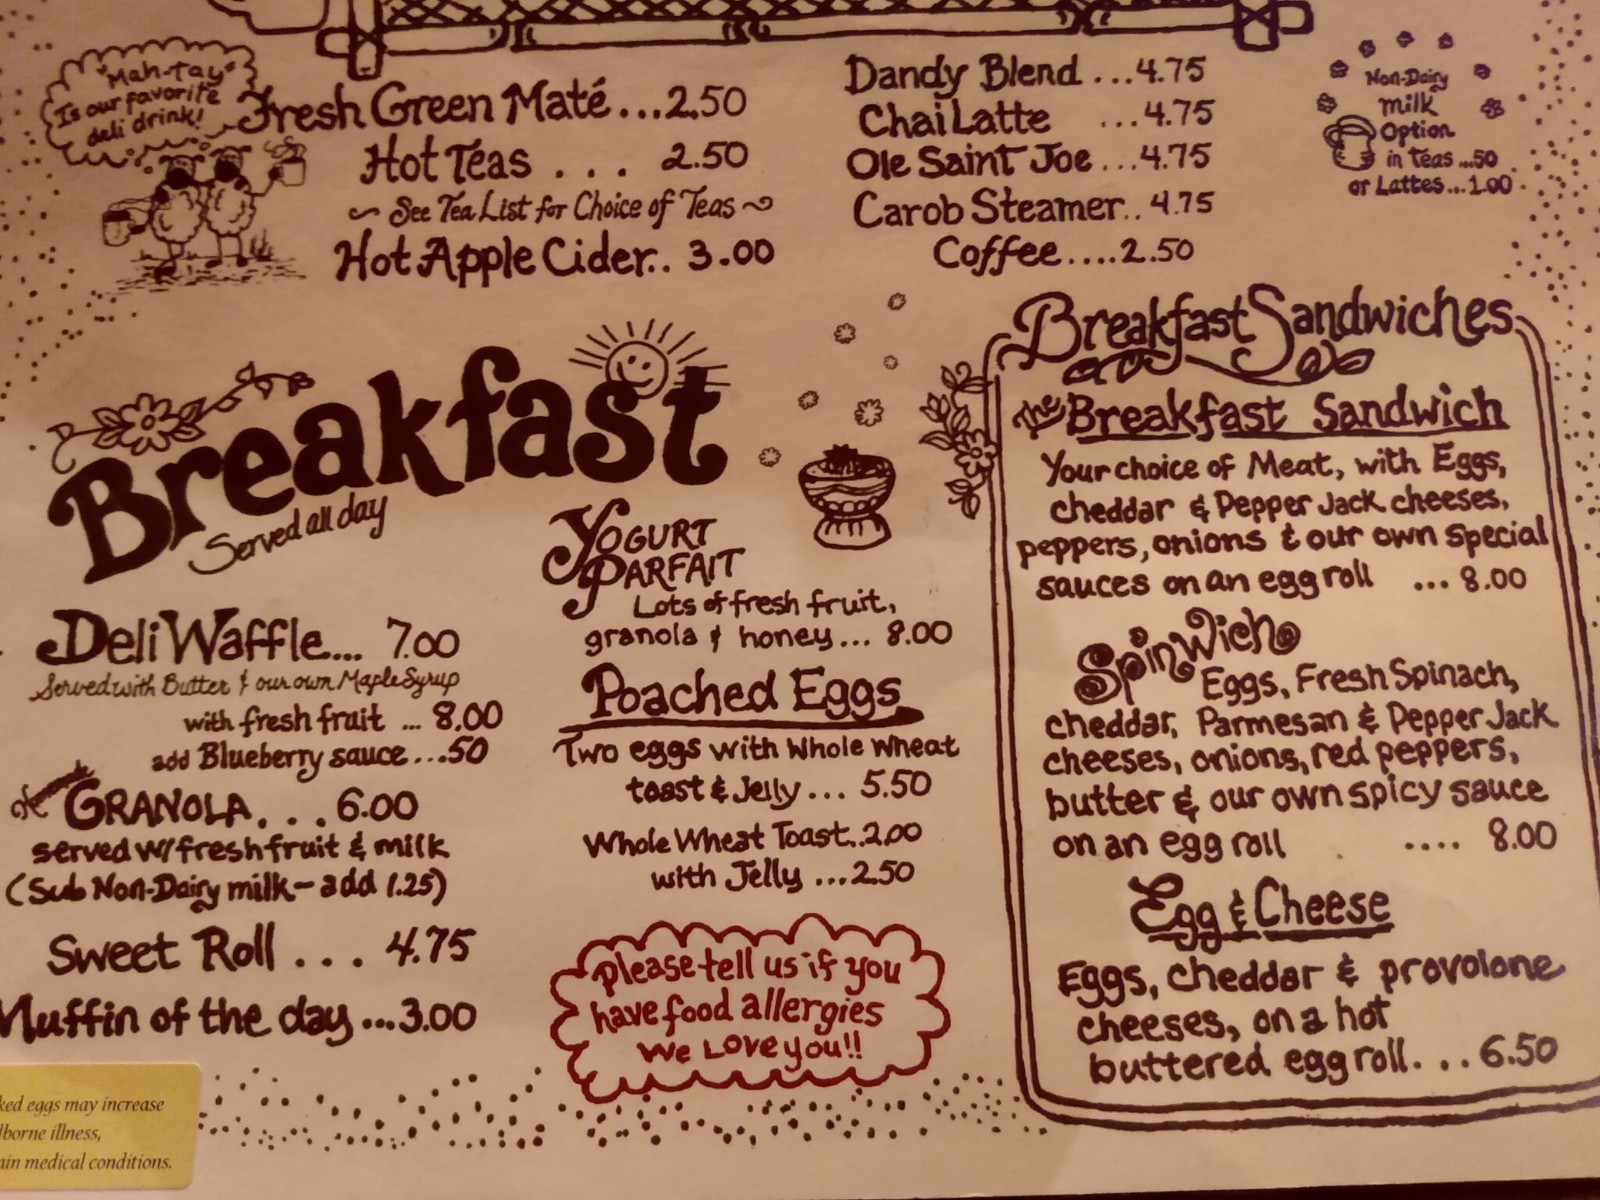 "Mah-Tay"
Is our favorite
deli drink!
Fresh Green Maté...2.50
Hot Teas . . . 2.50
~ See Tea List for Choice of Teas ~
Hot Apple Cider.. 3.00
Dandy Blend ...4.75
Chai Latte ...4.75
Ole Saint Joe ...4.75
Carob Steamer.. 4.75
Coffee....2.50
Non-Dairy
milk
Option
in Teas ...50
or Lattes...1.00
Breakfast
Served all day
Deli Waffle... 7.00
Served with Butter & our own Maple Syrup
with fresh fruit ... 8.00
add Blueberry sauce ...50
GRANOLA. . . . 6.00
served w/ fresh fruit & milk
(Sub Non-Dairy milk - add 1.25)
Sweet Roll . . . 4.75
Muffin of the day ...3.00
YOGURT
PARFAIT
Lots of fresh fruit,
granola & honey... 8.00
Poached Eggs
Two eggs with Whole Wheat
toast & Jelly... 5.50
Whole Wheat Toast..2.00
with Jelly ...2.50
please tell us if you
have food allergies
We Love you!!
Breakfast Sandwiches
The Breakfast Sandwich
Your choice of Meat, with Eggs,
cheddar & Pepper Jack cheeses,
peppers, onions & our own special
sauces on an egg roll ... 8.00
Spinwich
Eggs, Fresh Spinach,
cheddar, Parmesan & Pepper Jack
cheeses, onions, red peppers,
butter & our own spicy sauce
on an egg roll .... 8.00
Egg & Cheese
Eggs, cheddar & provolone
cheeses, on a hot
buttered egg roll. . . 6.50
eggs may increase
illness,
medical conditions.